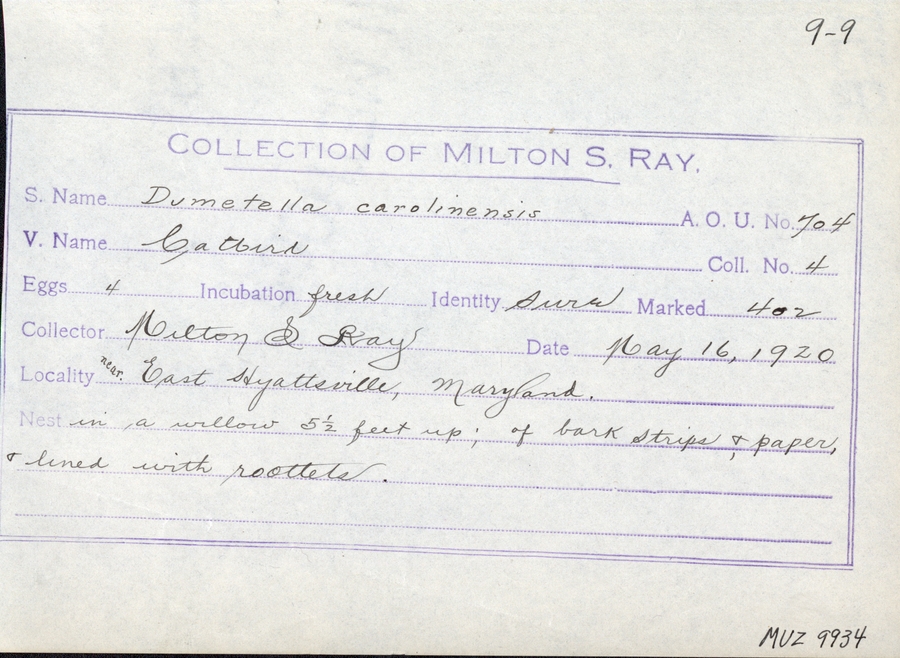 9-9
COLLECTION OF MILTON S. RAY.
S. Name Dumetella carolinensis A. O. U. No. 704
V. Name Catbird Coll. No. 4
Eggs 4 Incubation fresh Identity sure Marked 402
Collector Milton S Ray Date May 16, 1920
Locality near. East Hyattsville, Maryland.
Nest in a willow 5½ feet up; of bark strips & paper,
& lined with rootlets.
MVZ 9934